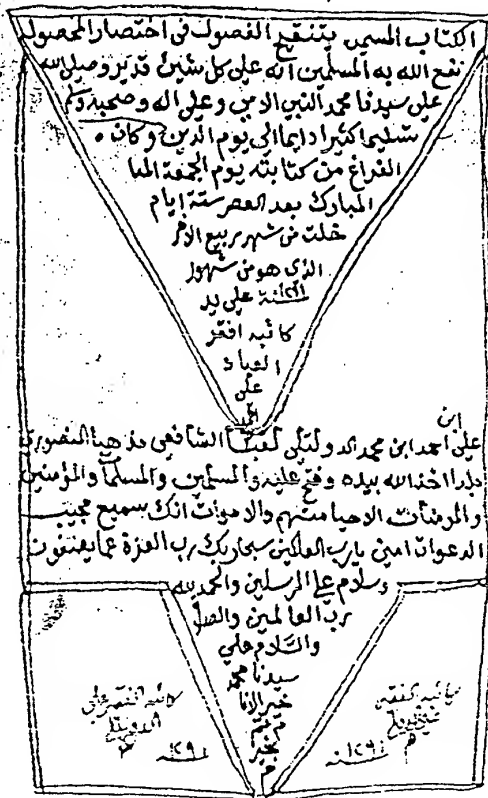 الكتاب المسمى بتنقيح الفصول في اختصار المحصول
نفع الله به المسلمين انه على كل شيئ قدير وصلى الله
على سيدنا محمد النبي الامي وعلى اله وصحبه وسلم
تسليما كثيرا دايما الى يوم الدين وكان
الفراغ من كتابته يوم الجمعة
المبارك بعد العصر ستة ايام
خلت من شهر ربيع الاخر
الذي هو من شهور
سنة على يد
كاتبه افقر
العباد
على
ابن
على احمد ابن محمد لقبا الشافعي مذهبا المنصوري
بلدا اخذ الله بيده وفتح عليه والمسلمين والمسلمات والمؤمنين
والمؤمنات الاحيا منهم والاموات انك سميع مجيب
الدعوات امين يارب العالمين سبحان ربك رب العزة عما يصفون
وسلام على المرسلين والحمد لله
رب العالمين والصلا
والسلام على
سيدنا محمد
خير الانا
م
بخير
م
كاتبه الفقير على
١٢٩١ سنة
كاتبه الفقير
١٢٩١ سنة